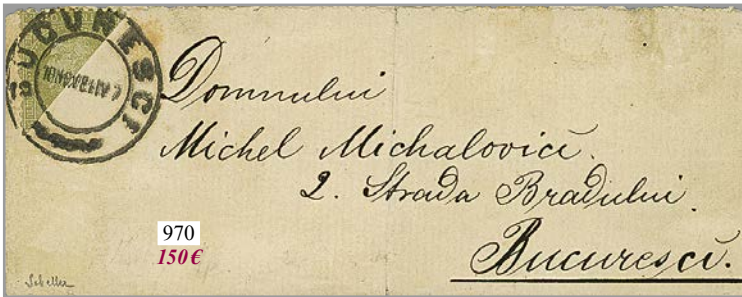 BUCURESCI
Domnului
Michel Michalovici.
2. Strada Bradului
Bucuresci.
970
150 €